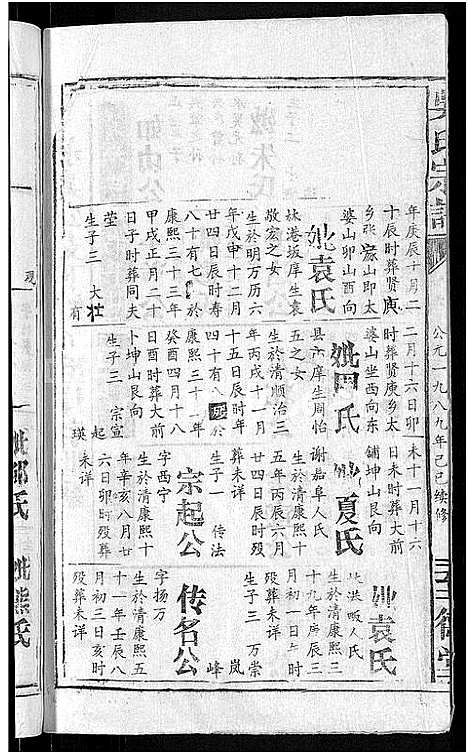 氏宗譜
公元一九八九年己巳续修
年庚辰十月二
十辰时葬贤庾
乡张家山即太
婆山卯山酉向
妣袁氏
妹港坂庠生袁
敬宏之女
生於明万历六
年戊申十二月
廿四日辰时寿
八十有七於
康熙三十三年
甲戌正月二十
日子时葬同夫
茔
生子三 大壮
有
二月十六日卯
时葬贤庾乡太
婆山坐西向东
妣田氏
县市庠生周怡
五之女
生於清顺治三
年丙戌十一月
十五日辰时年
四十有八殁於
康熙三十一年
癸酉四月十八
日酉时葬大前
卜坤山艮向
生子三 宗宣
起
瑛
未十一月十六
日未时葬大前
铺坤山艮向
妣夏氏
谢嘉阜人氏
生於清康熙十
五年丙辰六月
廿四日辰时殁
葬未详
生子一 传法
宗起公
字西宁
生於清康熙十
年辛亥八月廿
六日卯时殁葬
未详
妣袁氏
洪畈人氏
生於清康熙三
十九年庚辰三
月初一日时
殁葬未详
生子三 万崇
岚
峰
传名公
字扬万
生於清康熙五
十一年壬辰八
月初三日亥时
殁葬未详
妣邹氏
妣熊氏